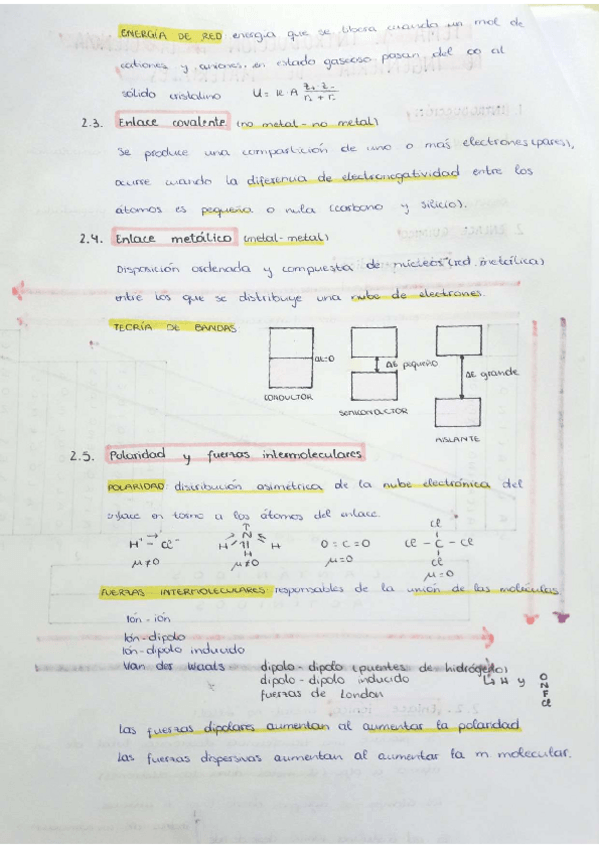 ENERGÍA DE RED: energía que se libera cuando un mol de
cationes y aniones, en estado gaseoso pasan del ∞ al
sólido cristalino U = K A Z+ Z- / r+ + r-
2.3. Enlace covalente (no metal - no metal)
Se produce una compartición de uno o más electrones (pares),
ocurre cuando la diferencia de electronegatividad entre los
átomos es pequeña o nula (carbono y silicio).
2.4. Enlace metálico (metal - metal)
Disposición ordenada y compuesta de núcleos (red metálica)
entre los que se distribuye una nube de electrones.
TEORÍA DE BANDAS
ΔE=0 ΔE pequeño ΔE grande
CONDUCTOR
SEMICONDUCTOR
AISLANTE
2.5. Polaridad y fuerzas intermoleculares
POLARIDAD: distribución asimétrica de la nube electrónica del
enlace en torno a los átomos del enlace.
Cl
H⁺ - Cl⁻ H N H H O = C = O Cl - C - Cl
Cl
μ≠0 μ≠0 μ=0 μ=0
FUERZAS INTERMOLECULARES responsables de la unión de las moléculas
Ión - ión
Ión - dipolo
Ión - dipolo inducido
Van der Waals dipolo - dipolo (puentes de hidrógeno)
dipolo - dipolo inducido H y O N F Cl
fuerzas de London
Las fuerzas dipolares aumentan al aumentar la polaridad
Las fuerzas dispersivas aumentan al aumentar la m. molecular.